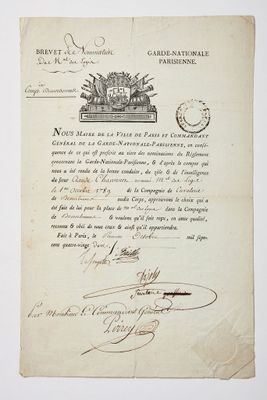 BREVET de Nomination
De Mal. des Logis
GARDE-NATIONALE
PARISIENNE.
NOUS MAIRE DE LA VILLE DE PARIS ET COMMANDANT
GÉNÉRAL DE LA GARDE-NATIONALE-PARISIENNE, en consé-
quence de ce qui est prescrit au titre des nominations du Règlement
concernant la Garde-Nationale-Parisienne, & d'après le compte qui
nous a été rendu de la bonne conduite, du zèle & de l'intelligence
du sieur nommé Mal. des Logis
le 1er octobre 1789 de la Compagnie de Cavalerie
de audit Corps, approuvons le choix qui a
été fait de lui pour la place de Mal. des Logis dans la Compagnie
de & voulons qu'il soit reçu, en cette qualité,
reconnu & obéi de tous ceux & ainsi qu'il appartiendra.
Fait à Paris, le Octobre mil sept-
cent quatre-vingt
Par Monsieur le Commandant Général